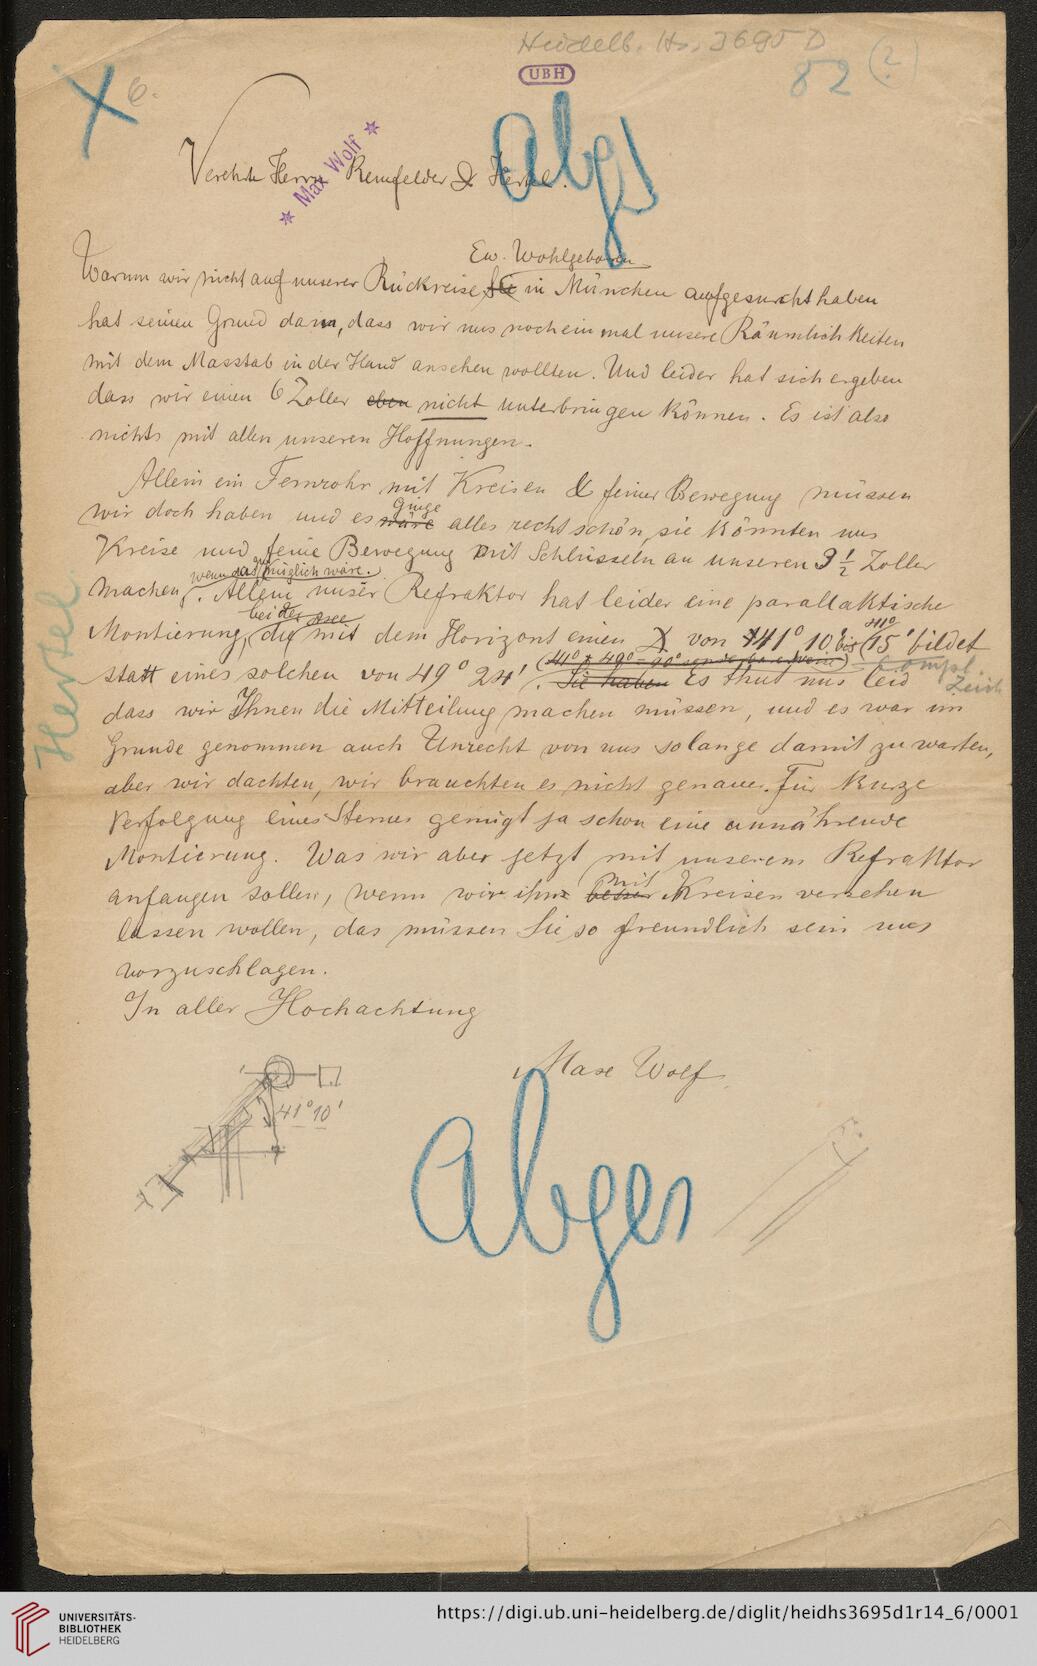 Heidelb. Hs. 3695 D
82 (?)
UBH
6.
Abgs
* Max Wolf *
Verehrte Herrn Reinfelder & Hertel.
Ew. Wohlgeboren
Warum wir nicht auf unserer Rückreise Sie in München aufgesucht haben
hat seinen Grund darin, dass wir uns noch einmal unsere Räumlichkeiten
mit dem Masstab in der Hand ansehen wollten. Und leider hat sich ergeben
dass wir einen 6 Zoller eben nicht unterbringen können. Es ist also
nichts mit allen unseren Hoffnungen.
Allein ein Fernrohr mit Kreisen & feiner Bewegung müssen
ginge
wir doch haben und es wäre alles recht schön, sie könnten uns
Kreise und feine Bewegung mit Schlüsseln an unseren 3 1/2 Zoller
wenn das möglich wäre.
machen. Allein unser Refraktor hat leider eine parallaktische
bei der
41°
Montierung, die mit dem Horizont einen X von 41° 10' bis (15' bildet
(41° + 49° = 90°
Compl.
statt eines solchen von 49° 24'. Sie haben Es thut uns leid
Zeich
dass wir Ihnen die Mitteilung machen müssen, und es war im
Grunde genommen auch Unrecht von uns solange damit zu warten,
aber wir dachten, wir brauchten es nicht genauer. Für kurze
Verfolgung eines Sternes genügt ja schon eine annährende
Montierung. Was wir aber jetzt mit unserem Refraktor
mit
anfangen sollen, wenn wir ihn besser Kreisen versehen
lassen wollen, das müssen Sie so freundlich sein uns
vorzuschlagen.
In aller Hochachtung
Max Wolf
41° 10'
Abges
Hertel
UNIVERSITÄTS-
BIBLIOTHEK
HEIDELBERG
https://digi.ub.uni-heidelberg.de/diglit/heidhs3695d1r14_6/0001